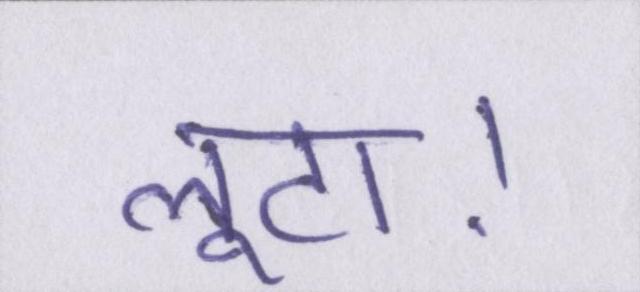 लूटा!